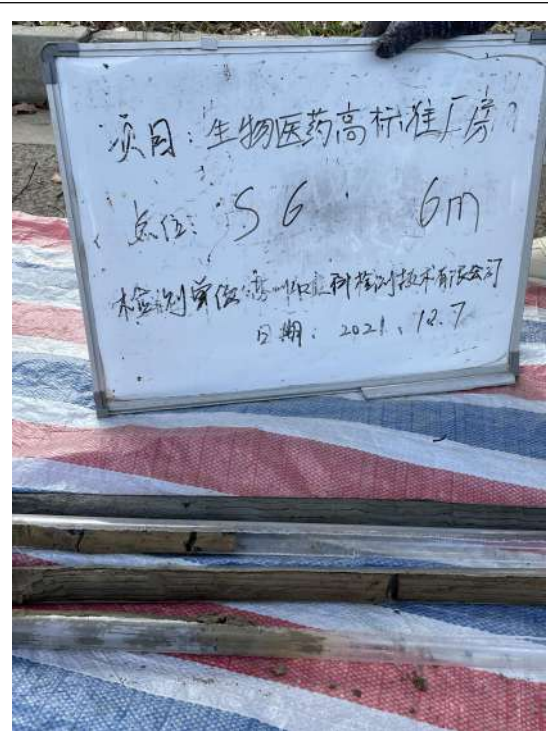 项目:生物医药高标准厂房
点位:S6 6m
检测单位:苏州 科检测技术有限公司
日期:2021.12.7